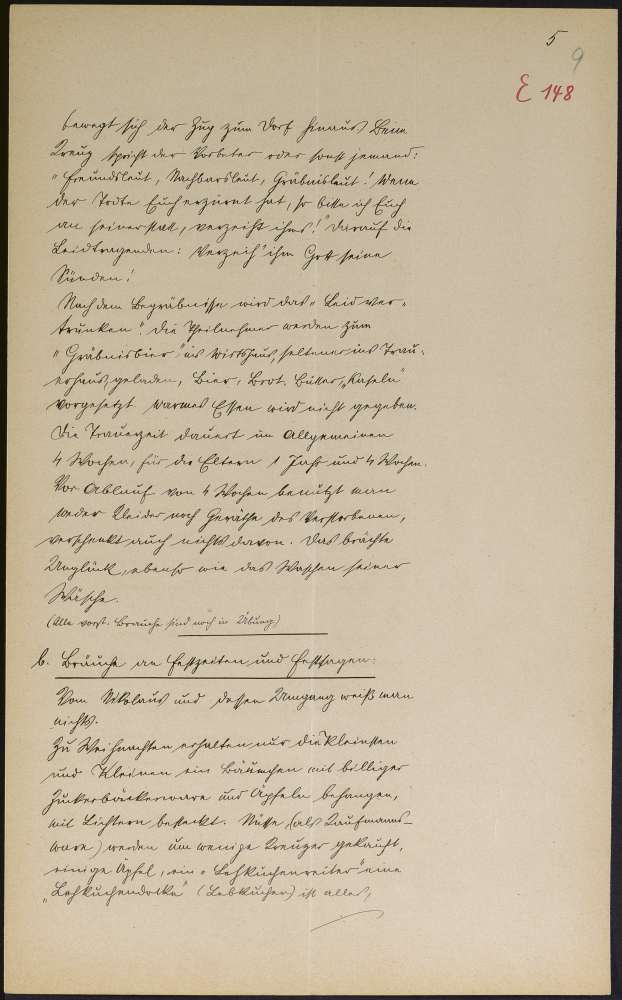 5
9
E 148
bewegt sich der Zug zum Dorf hinaus. Beim
Kreuz spricht der Vorbeter oder sonst jemand:
"Freundsleut, Nachbarsleut, Gräbnisleut! Wenn
der Todte Euch erzürnt hat, so bitte ich Euch
an seiner statt, verzeiht ihm!" Darauf die
Leidtragenden: "Verzeih' ihm Gott seine
Sünden!
Nach dem Begräbnisse wird das "Leid ver-
trunken". Die Theilnehmer werden zum
"Gräbnisbier" ins Wirtshaus, seltener ins Trau-
erhaus, geladen, Bier, Brot, Butter, "Kaseln"
vorgesetzt. Warmes Essen wird nicht gegeben.
Die Trauerzeit dauert im Allgemeinen
4 Wochen, für die Eltern 1 Jahr und 4 Wochen.
Vor Ablauf von 4 Wochen benützt man
weder Kleider noch Geräthe des Verstorbenen,
verschenkt auch nichts davon. Das brächte
Unglück, ebenso wie das Waschen seiner
Wäsche.
(Alle vorst. Bräuche sind noch in Übung)
b. Bräuche an Festzeiten und Festtagen:
Vom Nikolaus und dessen Umgang weiß man
nichts.
Zu Weihnachten erhalten nur die Kleinsten
und Kleinen ein Bäumchen mit billiger
Zuckerbäckerware und Äpfeln behangen,
mit Lichtern besteckt. Nüsse (als Kaufmanns-
ware) werden um wenige Kreuzer gekauft,
einige Äpfel, ein "Lebkuchenreiter" eine
"Lebkuchendocke" (Lebkuchen) ist alles,